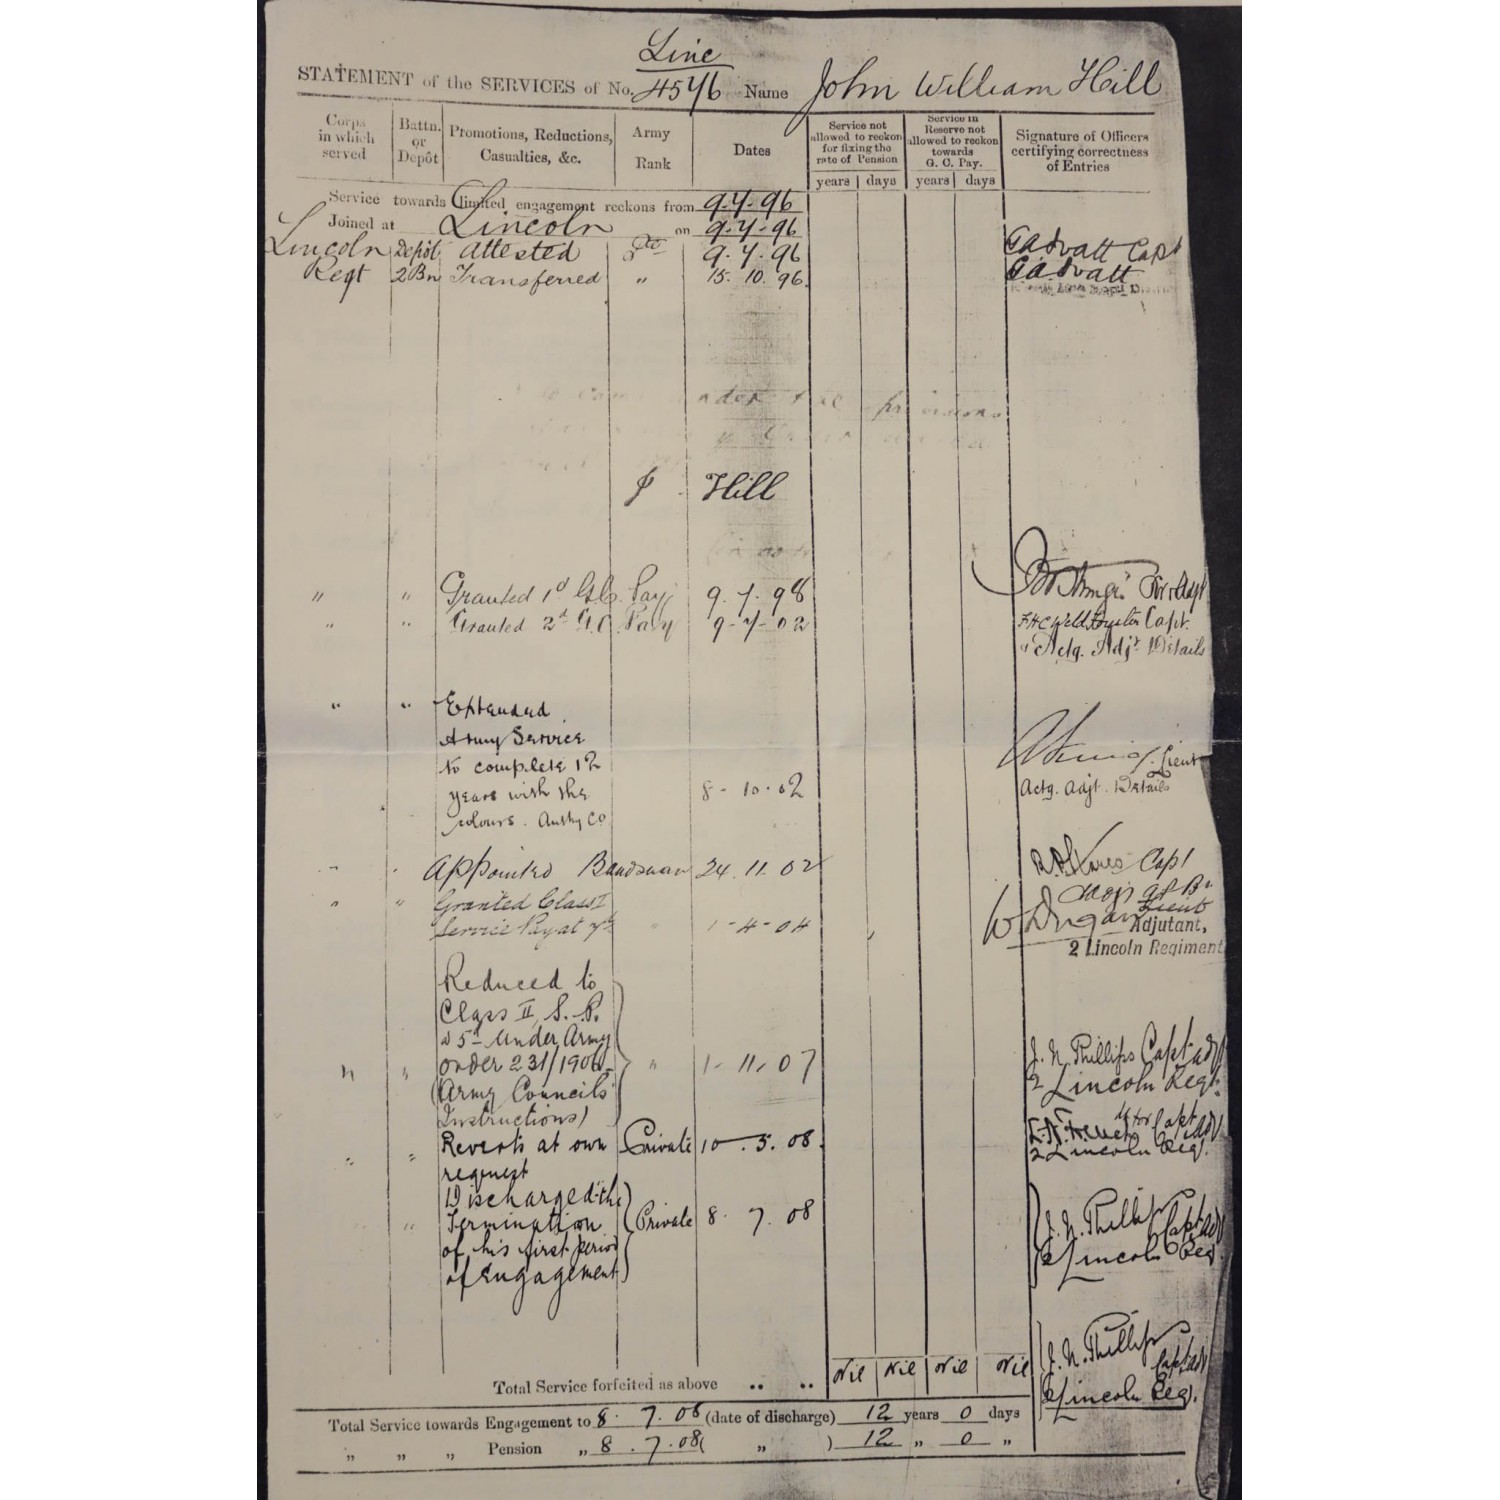 Linc
STATEMENT of the SERVICES of No. 4576 Name John William Hill
Corps in which served
Battn. or Depôt
Promotions, Reductions, Casualties, &c.
Army Rank
Dates
Service not allowed to reckon for fixing the rate of Pension
Service in Reserve not allowed to reckon towards G. C. Pay.
Signature of Officers certifying correctness of Entries
years days years days
Service towards limited engagement reckons from 9.7.96
Joined at Lincoln on 9.7.96
Lincoln Depôt Attested Pte 9.7.96 Capt
Regt 2Bn Transferred " 15.10.96
under the provisions
J Hill
" " Granted 1st G.C. Pay 9.7.98
" " Granted 2d G.C. Pay 9-7-02 Capt.
Actg. Adjt Details
" " Extended
Army Service
to complete 12
years with the 8-10-02 Lieut
colours. Authy CO Actg. Adjt. Details
" " Appointed Bandsman 24.11.02 Capt
" " Granted Class I
Service Pay at 7d " 1-4-04 Lieut
Adjutant,
2 Lincoln Regiment
Reduced to
Class II, S.P.
@ 5d under Army
" " order 231/1906 " 1-11-07 J. N. Phillips Capt adjt
(Army Councils 2 Lincoln Regt.
Instructions)
" " Reverts at own Private 10.3.08. for Capt adjt
request 2 Lincoln Regt.
Discharged the
" Termination Private 8.7.08 J. N. Phillips Capt adjt
of his first period 2/Lincoln Reg
of Engagement
Nil Nil Nil Nil J. N. Phillips
Capt adjt
Total Service forfeited as above .. .. 2/Lincoln Reg.
Total Service towards Engagement to 8.7.08 (date of discharge) 12 years 0 days
" " " Pension " 8.7.08 ( " ) 12 " 0 "